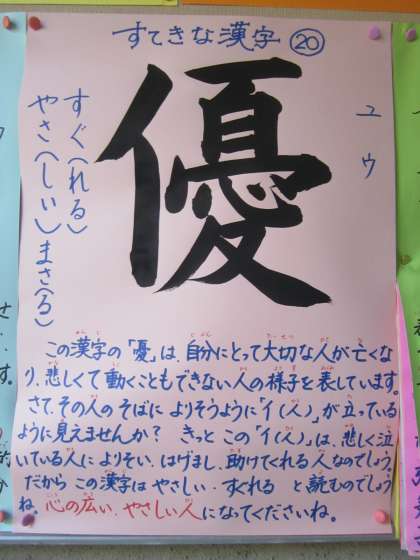 すてきな漢字 ⑳
優
ユウ
すぐ(れる)
やさ(しい) まさ(る)
この漢字の「優」は、自分にとって大切な人が亡くな
り、悲しくて動くこともできない人の様子を表しています。
さて、その人のそばに よりそうように「亻(人)」が立っている
ように見えませんか? きっと この「亻(人)」は、悲しく泣
いている人によりそい、はげまし、助けてくれる人なのでしょう。
だから この漢字は やさしい・すぐれる と読むのでしょう
ね。心の広い、やさしい人になってくださいね。